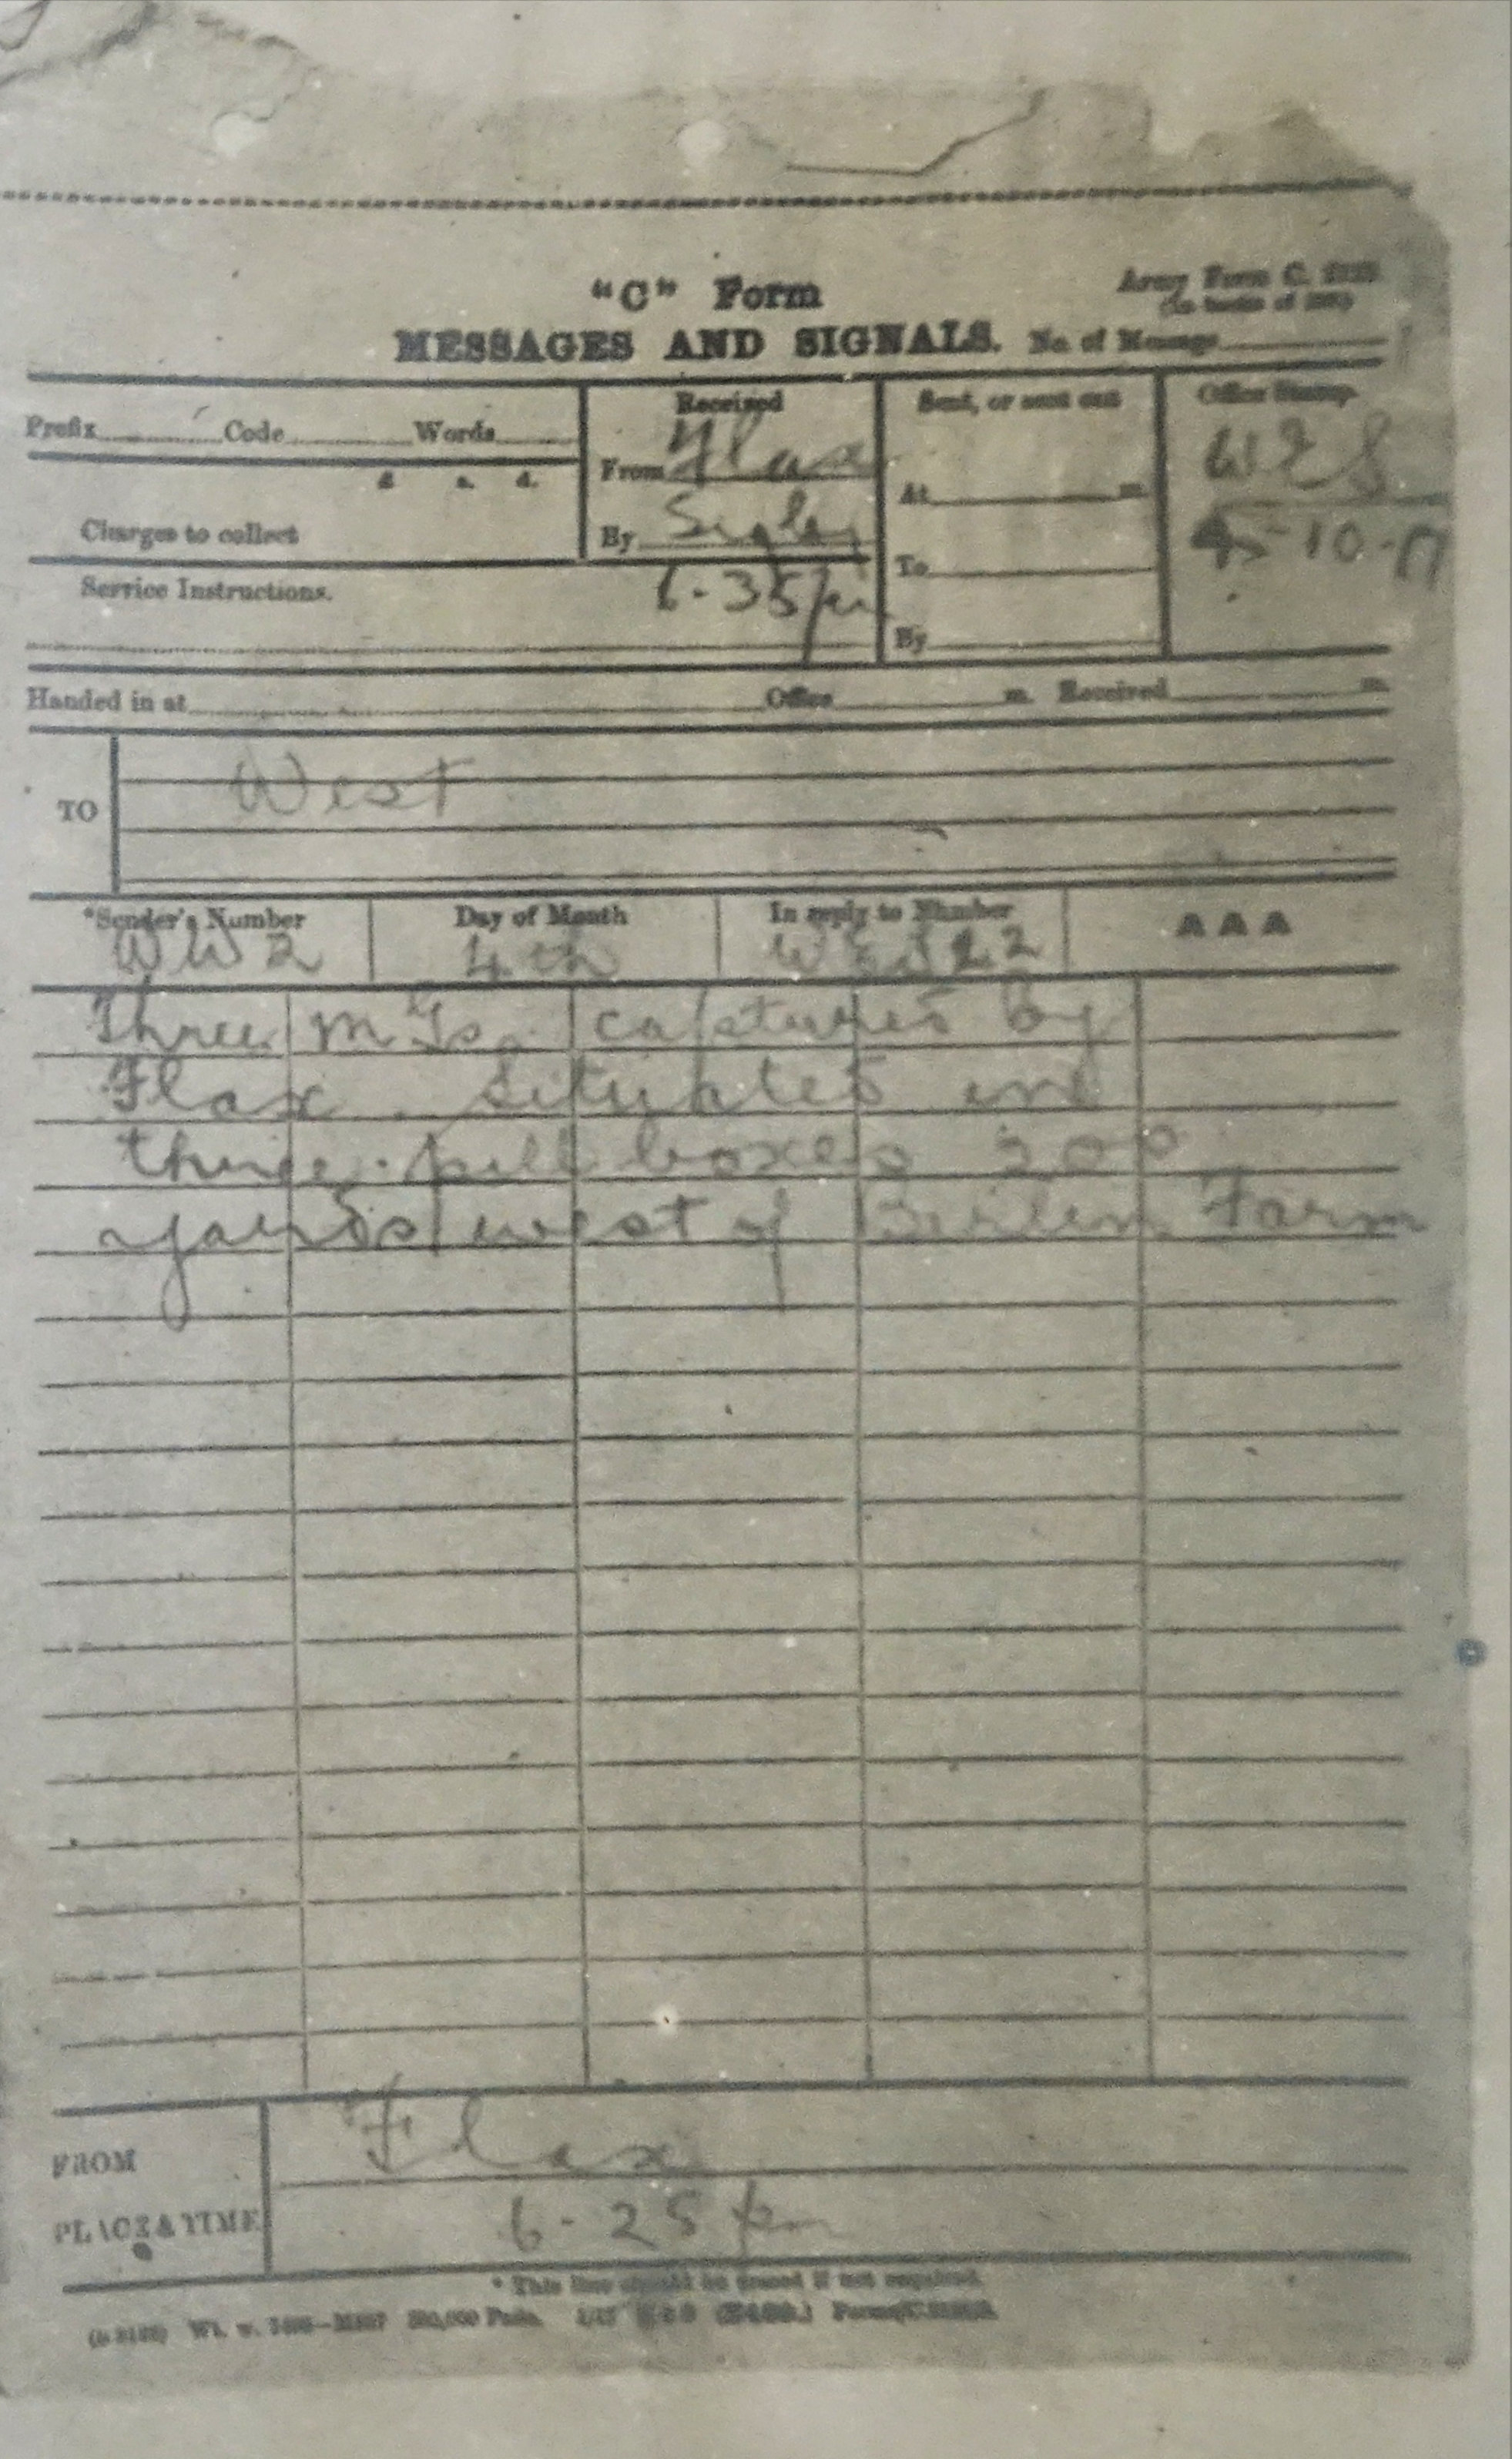 "C" Form
MESSAGES AND SIGNALS. No. of Message
Army Form C.
Prefix Code Words
Received
From Flax
By
6-35pm
Sent, or sent out
At m
To
By
Office Stamp.
-10-17
Charges to collect
Service Instructions.
Handed in at Office m. Received m.
TO West
*Sender's Number Day of Month In reply to Number AAA
WW2 4th
Three M Gs. captured by
Flax. Situated in
three pill boxes 200
yards west of Berlin Farm
FROM Flax
PLACE & TIME 6-25 pm
* This line should be erased if not required.